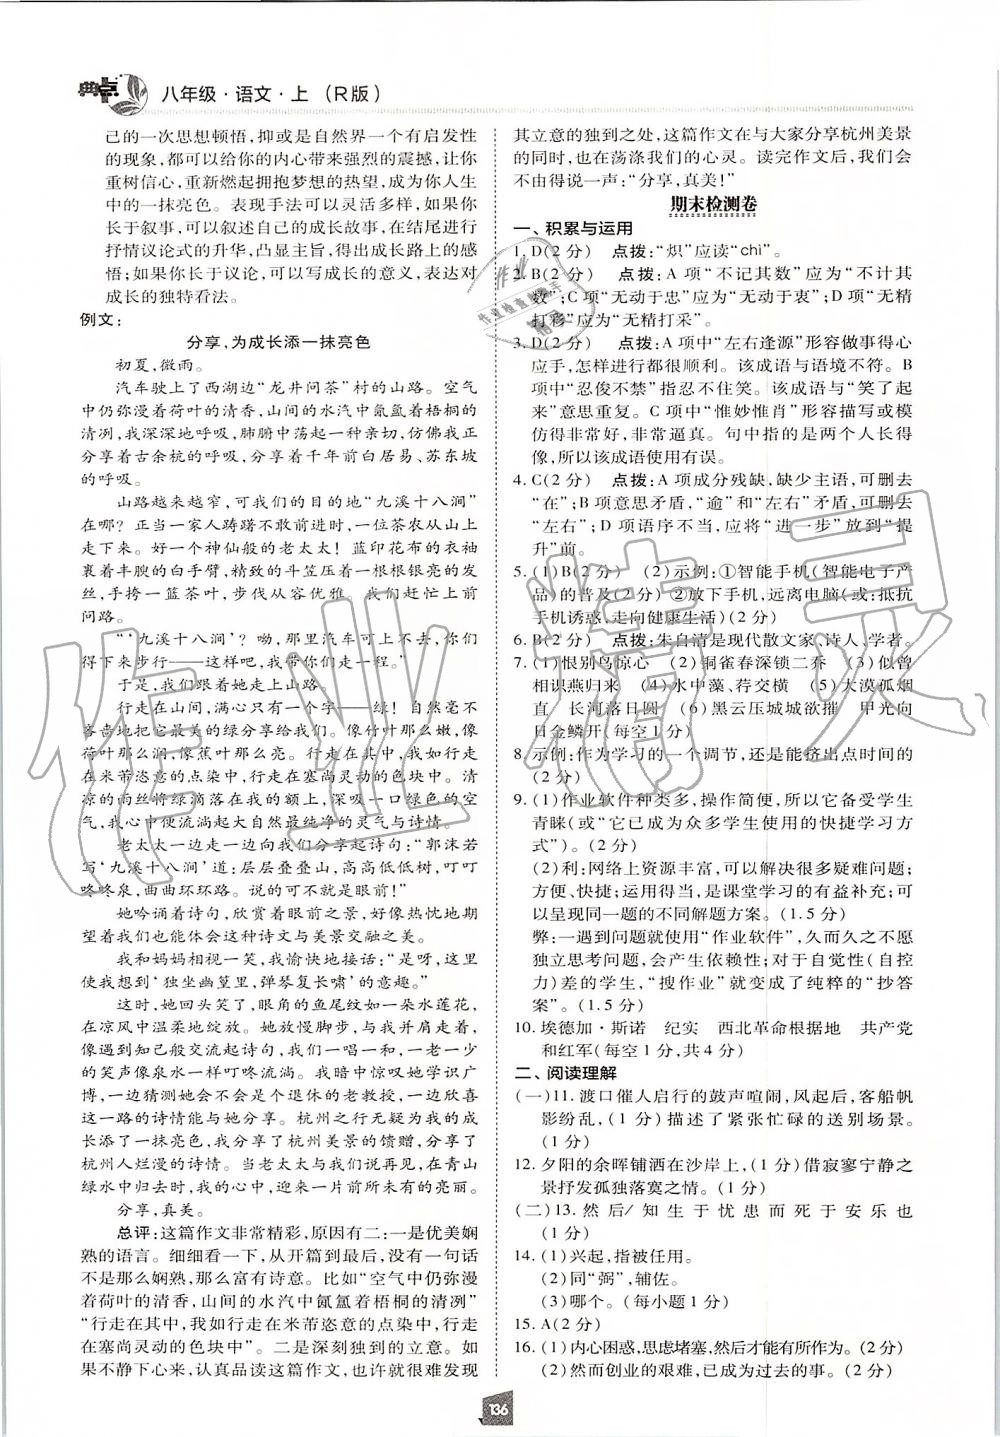 典点
八年级·语文·上 (R版)
己的一次思想顿悟,抑或是自然界一个有启发性
的现象,都可以给你的内心带来强烈的震撼,让你
重树信心,重新燃起拥抱梦想的热望,成为你人生
中的一抹亮色。表现手法可以灵活多样,如果你
长于叙事,可以叙述自己的成长故事,在结尾进行
抒情议论式的升华,凸显主旨,得出成长路上的感
悟;如果你长于议论,可以写成长的意义,表达对
成长的独特看法。
例文:
分享,为成长添一抹亮色
初夏,微雨。
汽车驶上了西湖边“龙井问茶”村的山路。空气
中仍弥漫着荷叶的清香,山间的水汽中氤氲着梧桐的
清冽,我深深地呼吸,肺腑中荡起一种亲切,仿佛我正
分享着古余杭的呼吸,分享着千年前白居易、苏东坡
的呼吸。
山路越来越窄,可我们的目的地“九溪十八涧”
在哪?正当一家人踌躇不敢前行时,一位茶农从山上
走下来。好一个神仙般的老太太!蓝印花布的衣袖
裹着丰腴的白手臂,精致的斗笠压着一根根银亮的发
丝,手挎一篮茶叶,步伐从容优雅。我们赶忙上前
问路。
“‘九溪十八涧’?呦,那里汽车可上不来,你们
得下来步行——这样吧,我带你们走一走。”
于是,我们跟着她走上山路。
行走在山间,满心只有一个字——绿!自然毫不
吝啬地把它最美的绿分享给我们。像竹叶那么嫩,像
荷叶那么润,像蕉叶那么亮。行走在其中,我如行走
在米芾恣意的点染中,行走在塞尚灵动的色块中。清
凉的雨丝将绿滴落在我的额上,深吸一口绿色的空
气,我心中便流淌起大自然最纯净的灵气与诗情。
老太太一边走一边向我们分享起诗句:“郭沫若
写‘九溪十八涧’道:层层叠叠山,高高低低树,叮叮
咚咚泉,曲曲环环路。说的可不就是眼前!”
她吟诵着诗句,欣赏着眼前之景,好像热忱地期
望着我们也能体会这种诗文与美景交融之美。
我和妈妈相视一笑,我愉快地接话:“是呀,这里
使我想到‘独坐幽篁里,弹琴复长啸’的意趣。”
这时,她回头笑了,眼角的鱼尾纹如一朵水莲花,
在凉风中温柔地绽放。她放慢脚步,与我并肩走着,
像遇到知己般兴致勃勃地和我交流起诗句,一老一少
的笑声像泉水一样叮咚流淌。我暗暗惊叹她学识广
博,一边猜测她会不会是个退休的老教授,一边欣喜
这一路的诗情能与她分享。杭州之行无疑为我的成
长添了一抹亮色,我分享了杭州美景的馈赠,分享了
杭州人烂漫的诗情。当老太太与我们说再见,在青山
绿水中归去时,我的心中,迎来一片前所未有的亮丽。
分享,真美。
总评:这篇作文非常精彩,原因有二:一是优美娴
熟的语言。细细看一下,从开篇到最后,没有一句话
不是那么娴熟,那么富有诗意。比如“空气中仍弥漫
着荷叶的清香,山间的水汽中氤氲着梧桐的清冽”
“行走在其中,我如行走在米芾恣意的点染中,行走
在塞尚灵动的色块中”。二是深刻独到的立意。如
果不静下心来,认真品读这篇作文,也许就很难发现
其立意的独到之处,这篇作文在与大家分享杭州美景
的同时,也在荡涤我们的心灵。读完作文后,我们会
不由得说一声:“分享,真美!”
期末检测卷
一、积累与运用
1. D(2分) 点拨:“炽”应读“chì”。
2. B(2分) 点拨:A项“不记其数”应为“不计其
数”;C项“无动于忠”应为“无动于衷”;D项“无精
打彩”应为“无精打采”。
3. D(2分) 点拨:A项中“左右逢源”形容做事得心
应手,怎样进行都很顺利。该成语与语境不符。B
项中“忍俊不禁”指忍不住笑。该成语与“笑了起
来”意思重复。C项中“惟妙惟肖”形容描写或模
仿得非常好,非常逼真。句中指的是两个人长得
像,所以该成语使用有误。
4. C(2分) 点拨:A项成分残缺,缺少主语,可删去
“在”;B项意思矛盾,“逾”和“左右”矛盾,可删去
“左右”;D项语序不当,应将“进一步”放到“提
升”前。
5. (1)B(2分) (2)示例:①智能手机(智能电子产
品)的普及(2分) ②放下手机,远离电脑(或:抵抗
手机诱惑,走向健康生活)(2分)
6. B(2分) 点拨:朱自清是现代散文家、诗人、学者。
7. (1)恨别鸟惊心 (2)铜雀春深锁二乔 (3)似曾
相识燕归来 (4)水中藻、荇交横 (5)大漠孤烟
直 长河落日圆 (6)黑云压城城欲摧 甲光向
日金鳞开(每空1分)
8. 示例:作为学习的一个调节,还是能挤出点时间的
(2分)
9. (1)作业软件种类多,操作简便,所以它备受学生
青睐(或“它已成为众多学生使用的快捷学习方
式”)。(2分)
(2)利:网络上资源丰富,可以解决很多疑难问题;
方便、快捷;运用得当,是课堂学习的有益补充;可
以呈现同一题的不同解题方案。(1.5分)
弊:一遇到问题就使用“作业软件”,久而久之不愿
独立思考问题,会产生依赖性;对于自觉性(自控
力)差的学生,“搜作业”就变成了纯粹的“抄答
案”。(1.5分)
10. 埃德加·斯诺 纪实 西北革命根据地 共产党
和红军(每空1分,共4分)
二、阅读理解
(一)11. 渡口催人启行的鼓声喧闹,风起后,客船帆
影纷乱,(1分)描述了紧张忙碌的送别场景。
(1分)
12. 夕阳的余晖铺洒在沙岸上,(1分)借寂寥宁静之
景抒发孤独落寞之情。(1分)
(二)13. 然后/知生于忧患而死于安乐也
(1分)
14. (1)兴起,指被任用。
(2)同“弼”,辅佐。
(3)哪个。(每小题1分)
15. A(2分)
16. (1)内心困惑,思虑堵塞,然后才能有所作为。(2分)
(2)然而创业的艰难,已成为过去的事。(2分)
136
作业精灵